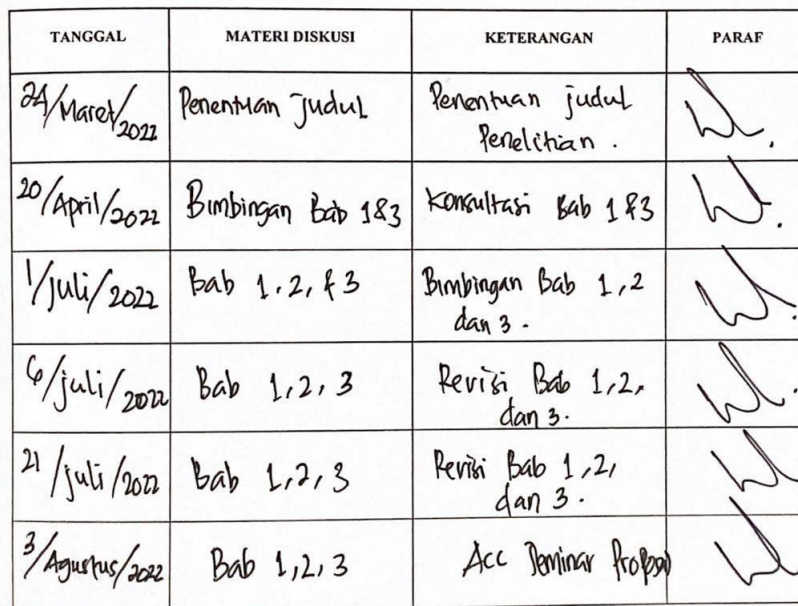 TANGGAL MATERI DISKUSI KETERANGAN PARAF
24/Maret/2022 Penentuan judul Penentuan judul
Penelitian .
20/April/2022 Bimbingan Bab 1&3 Konsultasi Bab 1 & 3
1/juli/2022 Bab 1, 2, & 3 Bimbingan Bab 1, 2
dan 3 .
6/juli/2022 Bab 1, 2, 3 Revisi Bab 1, 2,
dan 3.
21/juli/2022 Bab 1, 2, 3 Revisi Bab 1, 2,
dan 3 .
3/Agustus/2022 Bab 1, 2, 3 Acc Seminar Proposal